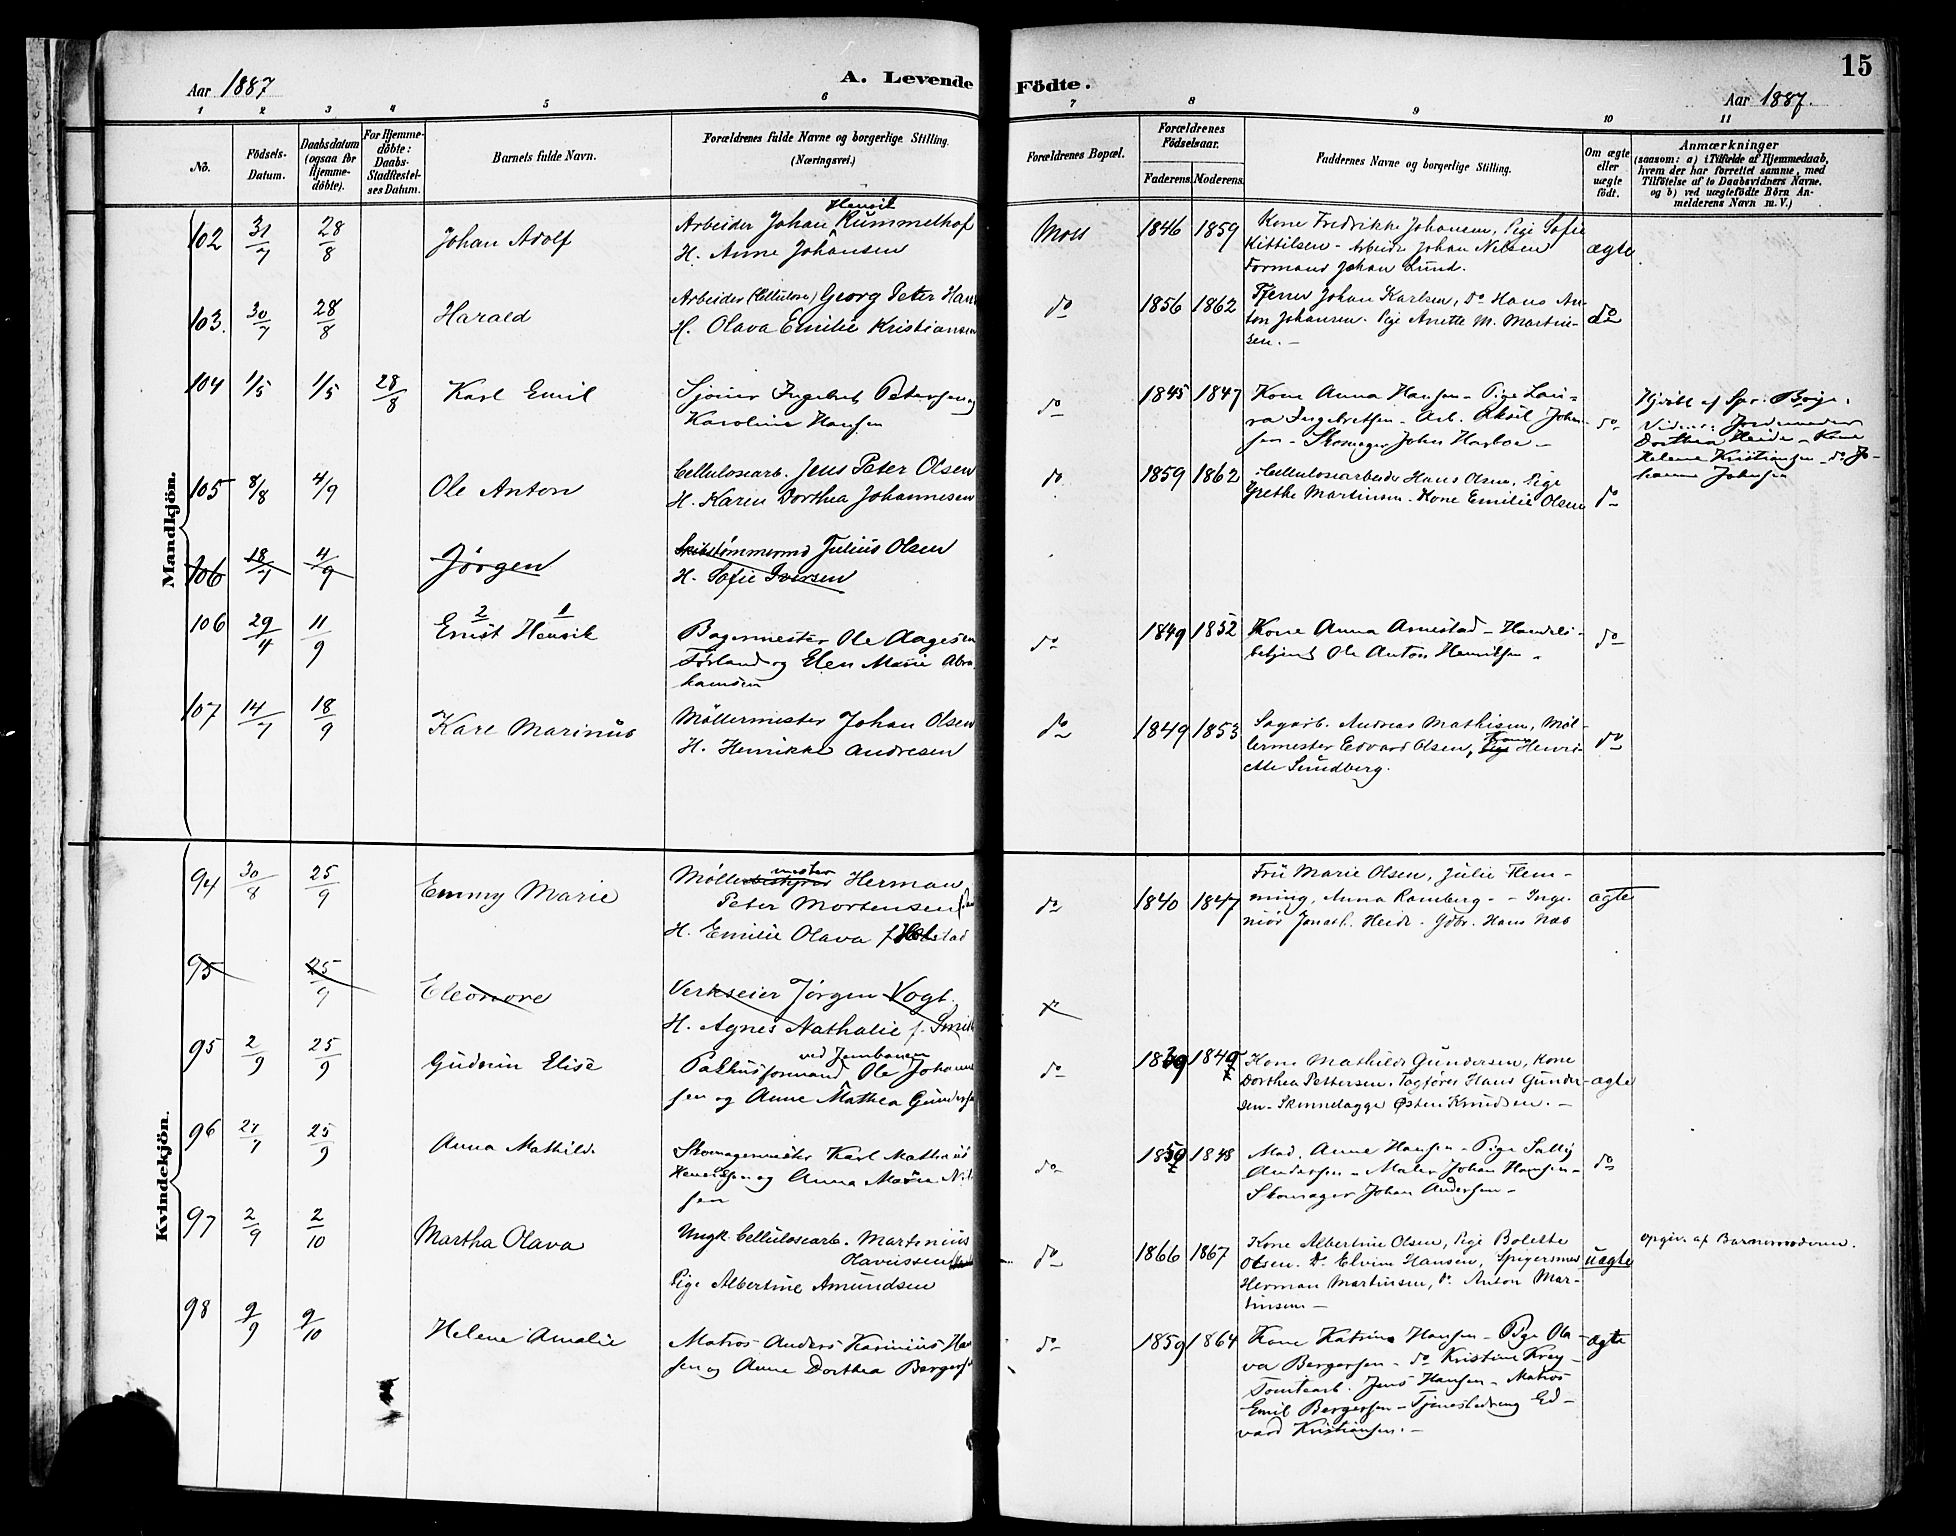 15
Aar 1887
A. Levende Födte.
Aar 1887.
1 2 3 4 5 6 7 8 9 10 11
No.
Födsels-Datum.
Daabsdatum (ogsaa for Hjemme-döbte).
For Hjemme-döbte: Daabs-Stadfestel-ses Datum.
Barnets fulde Navn.
Forældrenes fulde Navne og borgerlige Stilling.
(Næringsvei.)
Forældrenes Bopæl.
Forældrenes Födselsaar.
Faderens. Moderens.
Faddernes Navne og borgerlige Stilling.
Om ægte eller uægte födt.
Anmærkninger
(saasom: a) i Tilfælde af Hjemmedaab, hvem der har forrettet samme, med Tilföielse af to Daabsvidners Navne, og b) ved uægtefödte Börn An-melderens Navn m. V.)
Mandkjön.
102 31/7 28/8 Johan Adolf
Arbeider Johan Henrik Rummelhof
H. Anne Johansen
Moss 1846 1859
Kone Fredrikke Johansen, Pige Sofie
Kittilsen - Arbeider Johan Nilsen
Formand Johan Lund.
ægte
103. 30/7 28/8 Harald
Arbeider (Cellulose) Georg Peter Han
H. Olava Emilie Kristiansen
do 1856 1862
Tjener Johan Karlsen, Do Hans An-
ton Johansen. Pige Anette M. Martin-
sen. -
do
104 1/5 1/5 28/8 Karl Emil
Sjøm Ingebret Petersen og
Karoline Hansen
do 1845 1847
Kone Anna Hansen - Pige Lau-
ra Ingebretsen - Arb. Aksil Johan-
sen - Skomager John Harboe -
do
Hjdøbt af Spr. Boije.
Vidner: Jordemoder
Dorthea Heide - Kone
Helene Kristiansen - do Jo-
hanne Johnsen
105 8/8 4/9 Ole Anton
Cellulosearb. Jens Peter Olsen
H. Karen Dorthea Johannesen
do 1859 1862
Cellulosearbeider Hans Olsen, Pige
Grethe Martinsen. Kone Emilie Olsen
do
106 18/7 4/9 Jørgen
Skibstømmermd Julius Olsen
H. Sofie Iversen
106 29/4 11/9
2 1
Ernst Henrik
Bagermester Ole Aagesen
Førland og Elen Marie Abra
hamsen
do 1849 1852
Kone Anna Arnestad - Handels-
betjent Ole Anton Henriksen -
do
107 14/7 18/9 Karl Marinus
Møllermester Johan Olsen
H. Henrikke Andresen
do 1849 1853
Sagarb. Andreas Mathisen, Møl-
lermester Edvard Olsen, Pige Kone Henri-
ette Sundberg.
do
Kvindekjön.
94 30/8 25/9 Emmy Marie
Møllebestyrer mester Herman
Peter Mortensen
H. Emilie Olava f. Holstad
do 1840 1847
Frü Marie Olsen, Julie Flem-
ming, Anna Ramberg - - Inge-
niør Jonath. Heide - Gdbr. Hans Næs
ægte
95 25/9 Eleonore
Verkseier Jørgen Vogt.
H. Agnes Nathalie f. Smith
do
95 2/9 25/9 Gudrun Elise
Pakhusformand ved Jernbanen Ole Johann
sen og Anne Mathea Gundersen
do 1849
Kone Mathilde Gundersen, Kone
Dorthea Pettersen. Togfører Hans Gunder-
sen - Skinnelægge Østen Knudsen. -
ægte
96 27/7 25/9 Anna Mathilde
Skomagermester Karl Mathius
Henriksen og Anna Marie Nil
sen
do 1848
Mad. Anne Hansen - Pige Sally
Andersen - Maler Johan Hansen -
Skomager Johan Andersen -
do
97 2/9 2/10 Martha Olava
Ungk. Cellulosearb. Martinius
Olavessen
Pige Albertine Amundsen
do 1866 1867
Kone Albertine Olsen, Pige Bolette
Olsen. Do Elvine Hansen, Spigersmed
Herman Martinsen, do Anton Mar-
tinsen -
uægte
opgiv. af Barnemoderen.
98 9/9 9/10 Helene Amalie
Matros Anders Karinius Han
sen og Anne Dorthea Bergersen
do 1859 1864
Kone Katrine Hansen - Pige Ola-
va Bergersen - do Kristine Krey -
Tomtearb. Jens Hansen - Matros
Emil Bergersen - Tjenestedreng Ed-
vard Kristiansen. -
ægte